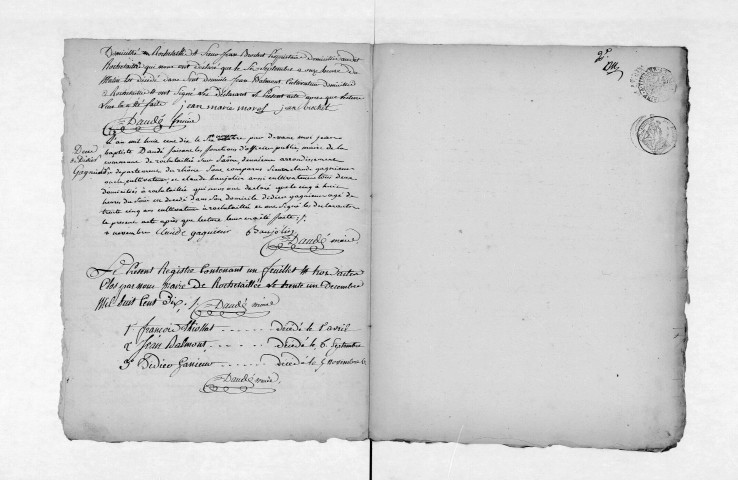 Domicilié a Rochetaillée & Sieur Jean Brochet Propriétaire domicilié audit
Rochetaillée qui nous ont déclaré que le six Septembre a onze heures du
Matin est decedé dans Son domicile Jean Dalmont Cultivateur domicilié
a Rochetaillée & ont Signé les déclarants le present acte apres que lecture
leur a été faite jean marie morel jean brochet
Daudé maire
Decé
Didier
Gagnieur
L'an mil huit cent dix le Six novembre par devant moi jean
baptiste Daudé faisant les fonctions d'officier public, maire de la
commune de rochetaillée sur Saône, deuxieme arrondissement
departement du rhône Sont comparus Sieur claude gagnieur
oncle cultivateur et claude baujolin aussi cultivateur tous deux
domiciliés à rochetaillée qui nous ont declaré que le cinq à huit
heures du Soir est decedé dans son domicile didier gagnieur agé de
trente cinq ans cultivateur à rochetaillée et ont Signé les declarants
le present acte après que lecture leur en a été faite ./.
& novembre claude gagnieur Baujolin
Daudé maire
Le Present Registre Contenant un feuillet
Clos par nous Maire de Rochetaillée le trente un Decembre
Mil huit Cent Dix ./. Daudé maire
1° françois Thiollat ------ decédé le 1 avril
2 Jean Dalmont, ------ decédé le 6 Septembre
3° Dedier Ganieur ------ decédé le 5 novembre
Daudé maire